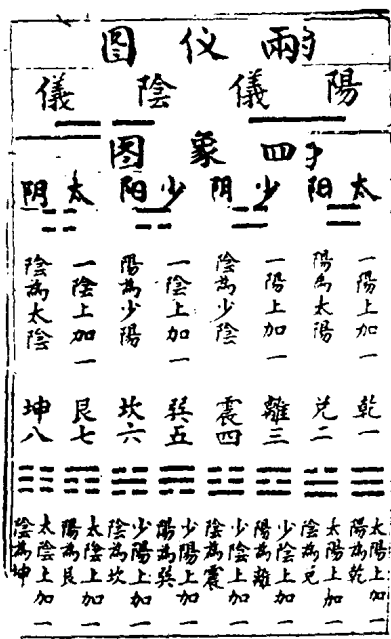 兩仪图
陽儀 陰儀
四象图
太阳 少阴 少阳 太阴
一陽上加一
陽為太陽
一陽上加一
陰為少陰
一陰上加一
陽為少陽
一陰上加一
陰為太陰
乾一
兑二
離三
震四
巽五
坎六
艮七
坤八
太陽上加一
陽為乾
太陽上加一
陰為兑
少陰上加一
陽為離
少陰上加一
陰為震
少陽上加一
陽為巽
少陽上加一
陰為坎
太陰上加一
陽為艮
太陰上加一
陰為坤